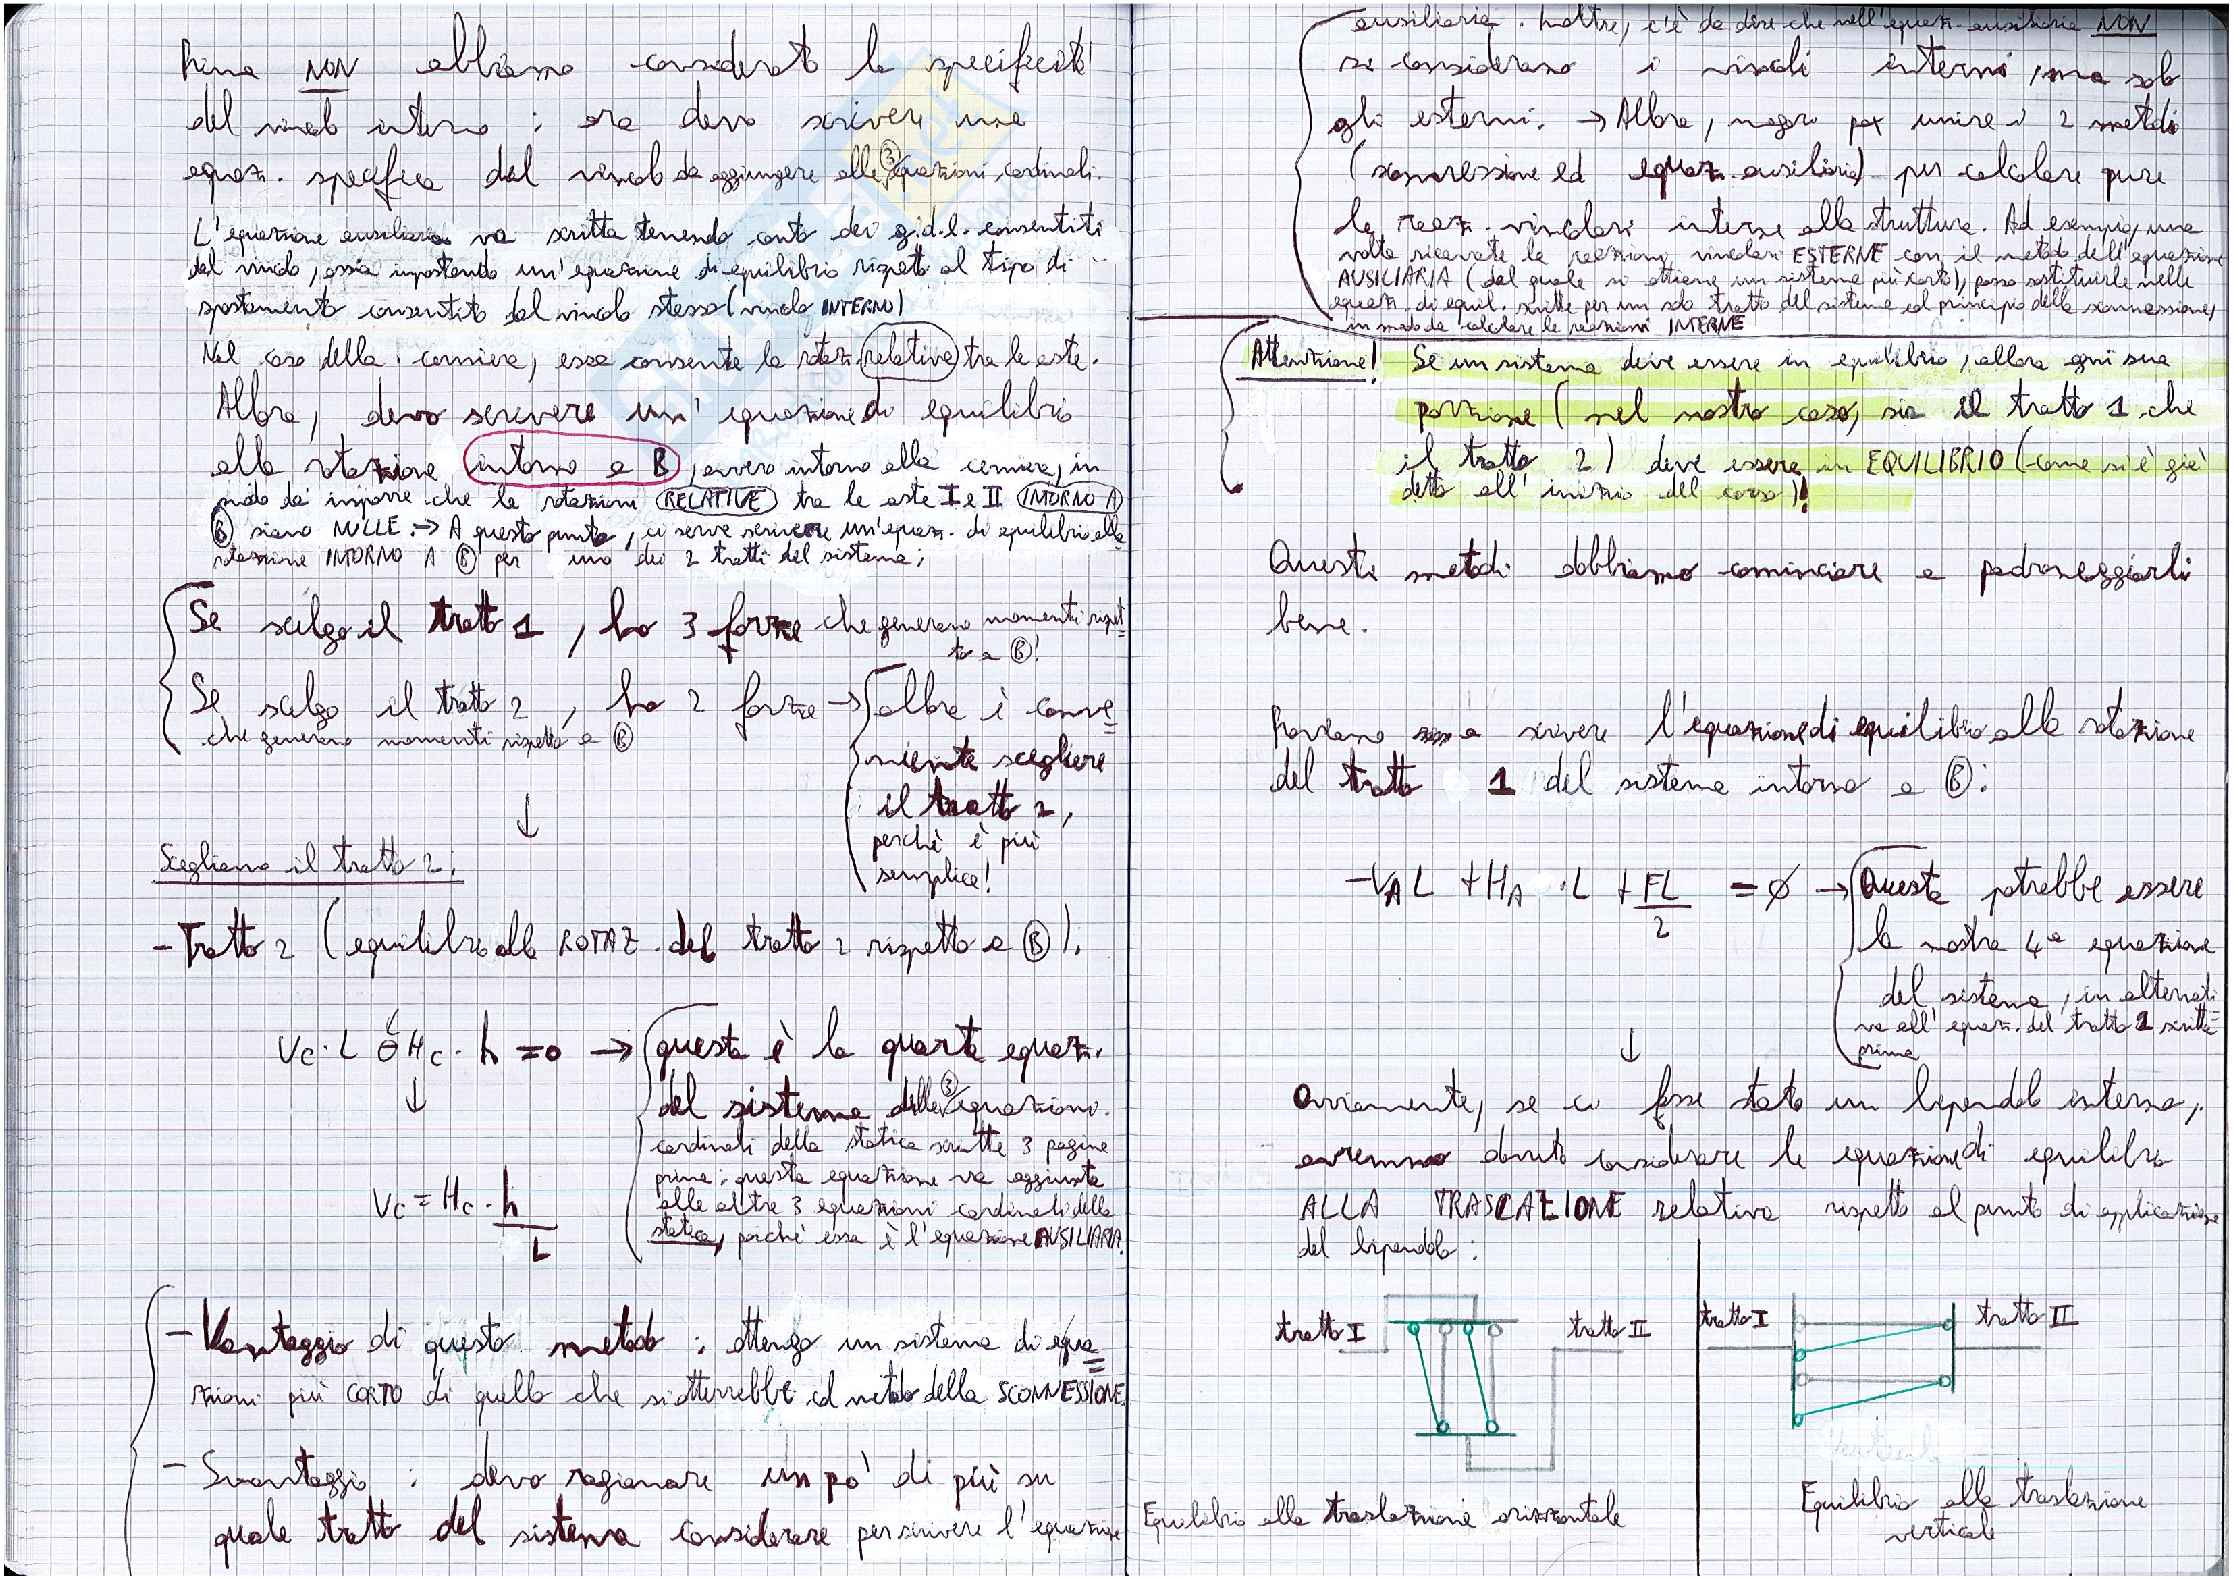 Prima NON abbiamo considerato la specificità
del vincolo interno ; ora devo scrivere una
equaz. specifica del vincolo da aggiungere alle ③ equazioni cardinali.
L'equazione ausiliaria va scritta tenendo conto dei g.d.l. consentiti
dal vincolo, ossia impostando un'equazione di equilibrio rispetto al tipo di
spostamento consentito dal vincolo stesso (vincolo INTERNO)
Nel caso della cerniera, essa consente la rotaz. relativa tra le aste.
Allora, devo scrivere un'equazione di equilibrio
alla rotazione intorno a B, ovvero intorno alla cerniera, in
modo da imporre che le rotazioni RELATIVE tra le aste I e II INTORNO A
Ⓑ siano NULLE. → A questo punto, ci serve scrivere un'equaz. di equilibrio alla
rotazione INTORNO A Ⓑ per uno dei 2 tratti del sistema;
Se scelgo il tratto 1, ho 3 forze che generano momenti rispet=
to a Ⓑ!
Se scelgo il tratto 2, ho 2 forze →
che generano momenti rispetto a Ⓑ
allora è conve=
niente scegliere
il tratto 2,
perchè è più
semplice!
↓
Scegliamo il tratto 2:
- Tratto 2 (equilibrio alla ROTAZ. del tratto 2 rispetto a Ⓑ):
Vc · L ⊖ Hc · h = 0 →
↓
Vc = Hc · h/L
questa è la quarta equaz.
del sistema delle ③ equazioni
cardinali della statica scritte 3 pagine
prima; questa equazione va aggiunta
alle altre 3 equazioni cardinali della
statica, poichè essa è l'equazione AUSILIARIA.
- Vantaggio di questo metodo : ottengo un sistema di equa=
zioni più CORTO di quello che si otterrebbe col metodo della SCONNESSIONE.
- Svantaggio : devo ragionare un pò di più su
quale tratto del sistema considerare per scrivere l'equazione
ausiliaria. Inoltre, c'è da dire che nell'equaz. ausiliaria NON
si considerano i vincoli interni, ma solo
gli esterni. → Allora, magari poi unire i 2 metodi
(sconnessione ed equaz. ausiliaria) per calcolare pure
le reaz. vincolari interne alla struttura. Ad esempio, una
volta ricavate le reazioni vincolari ESTERNE con il metodo dell'equazione
AUSILIARIA (dal quale si ottiene un sistema più corto), posso sostituirle nelle
equaz. di equil. scritte per un solo tratto del sistema col principio della sconnessione,
in modo da calcolare le reazioni INTERNE
Attenzione! Se un sistema deve essere in equilibrio, allora ogni sua
porzione (nel nostro caso, sia il tratto 1 che
il tratto 2) deve essere in EQUILIBRIO (come si è già
detto all'inizio del corso)!
Questi metodi dobbiamo cominciare a padroneggiarli
bene.
Proviamo a scrivere l'equazione di equilibrio alla rotazione
del tratto 1 del sistema intorno a Ⓑ:
-VA L + HA · L + FL/2 = 0 →
Questa potrebbe essere
la nostra 4ª equazione
del sistema, in alternati=
va all'equaz. del tratto 2 scritta
prima
↓
Ovviamente, se ci fosse stato un bipendolo interno,
avremmo dovuto considerare le equazione di equilibrio
ALLA TRASLAZIONE relativa rispetto al punto di applicazione
del bipendolo:
tratto I
tratto II
Equilibrio alla traslazione orizzontale
tratto I
tratto II
Equilibrio alla traslazione
verticale